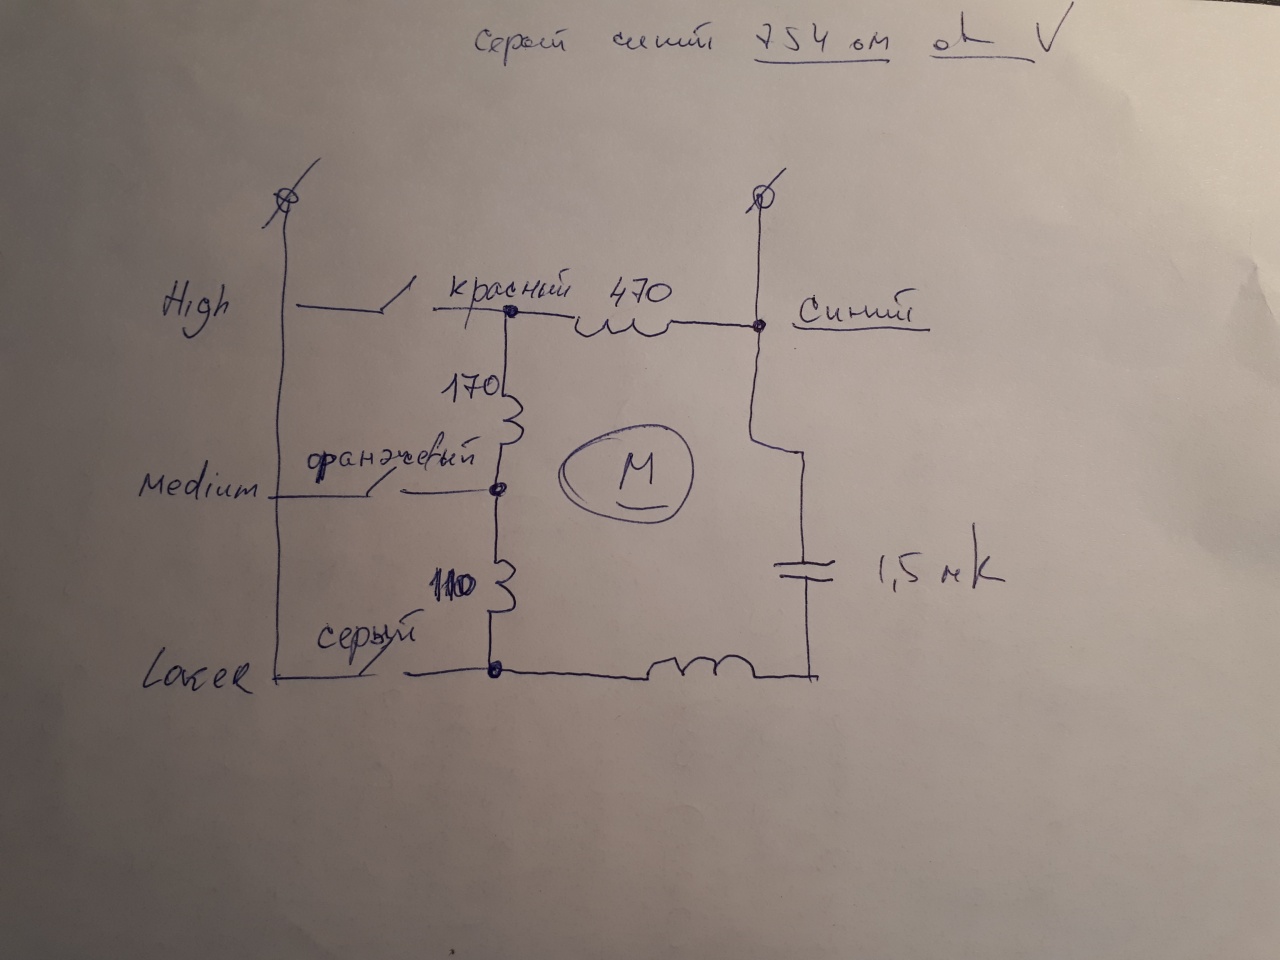 Серый синий 754 ом ok V
High красный 470 Синий
170
оранжевый
Medium M
110 1,5 мк
серый
Lower